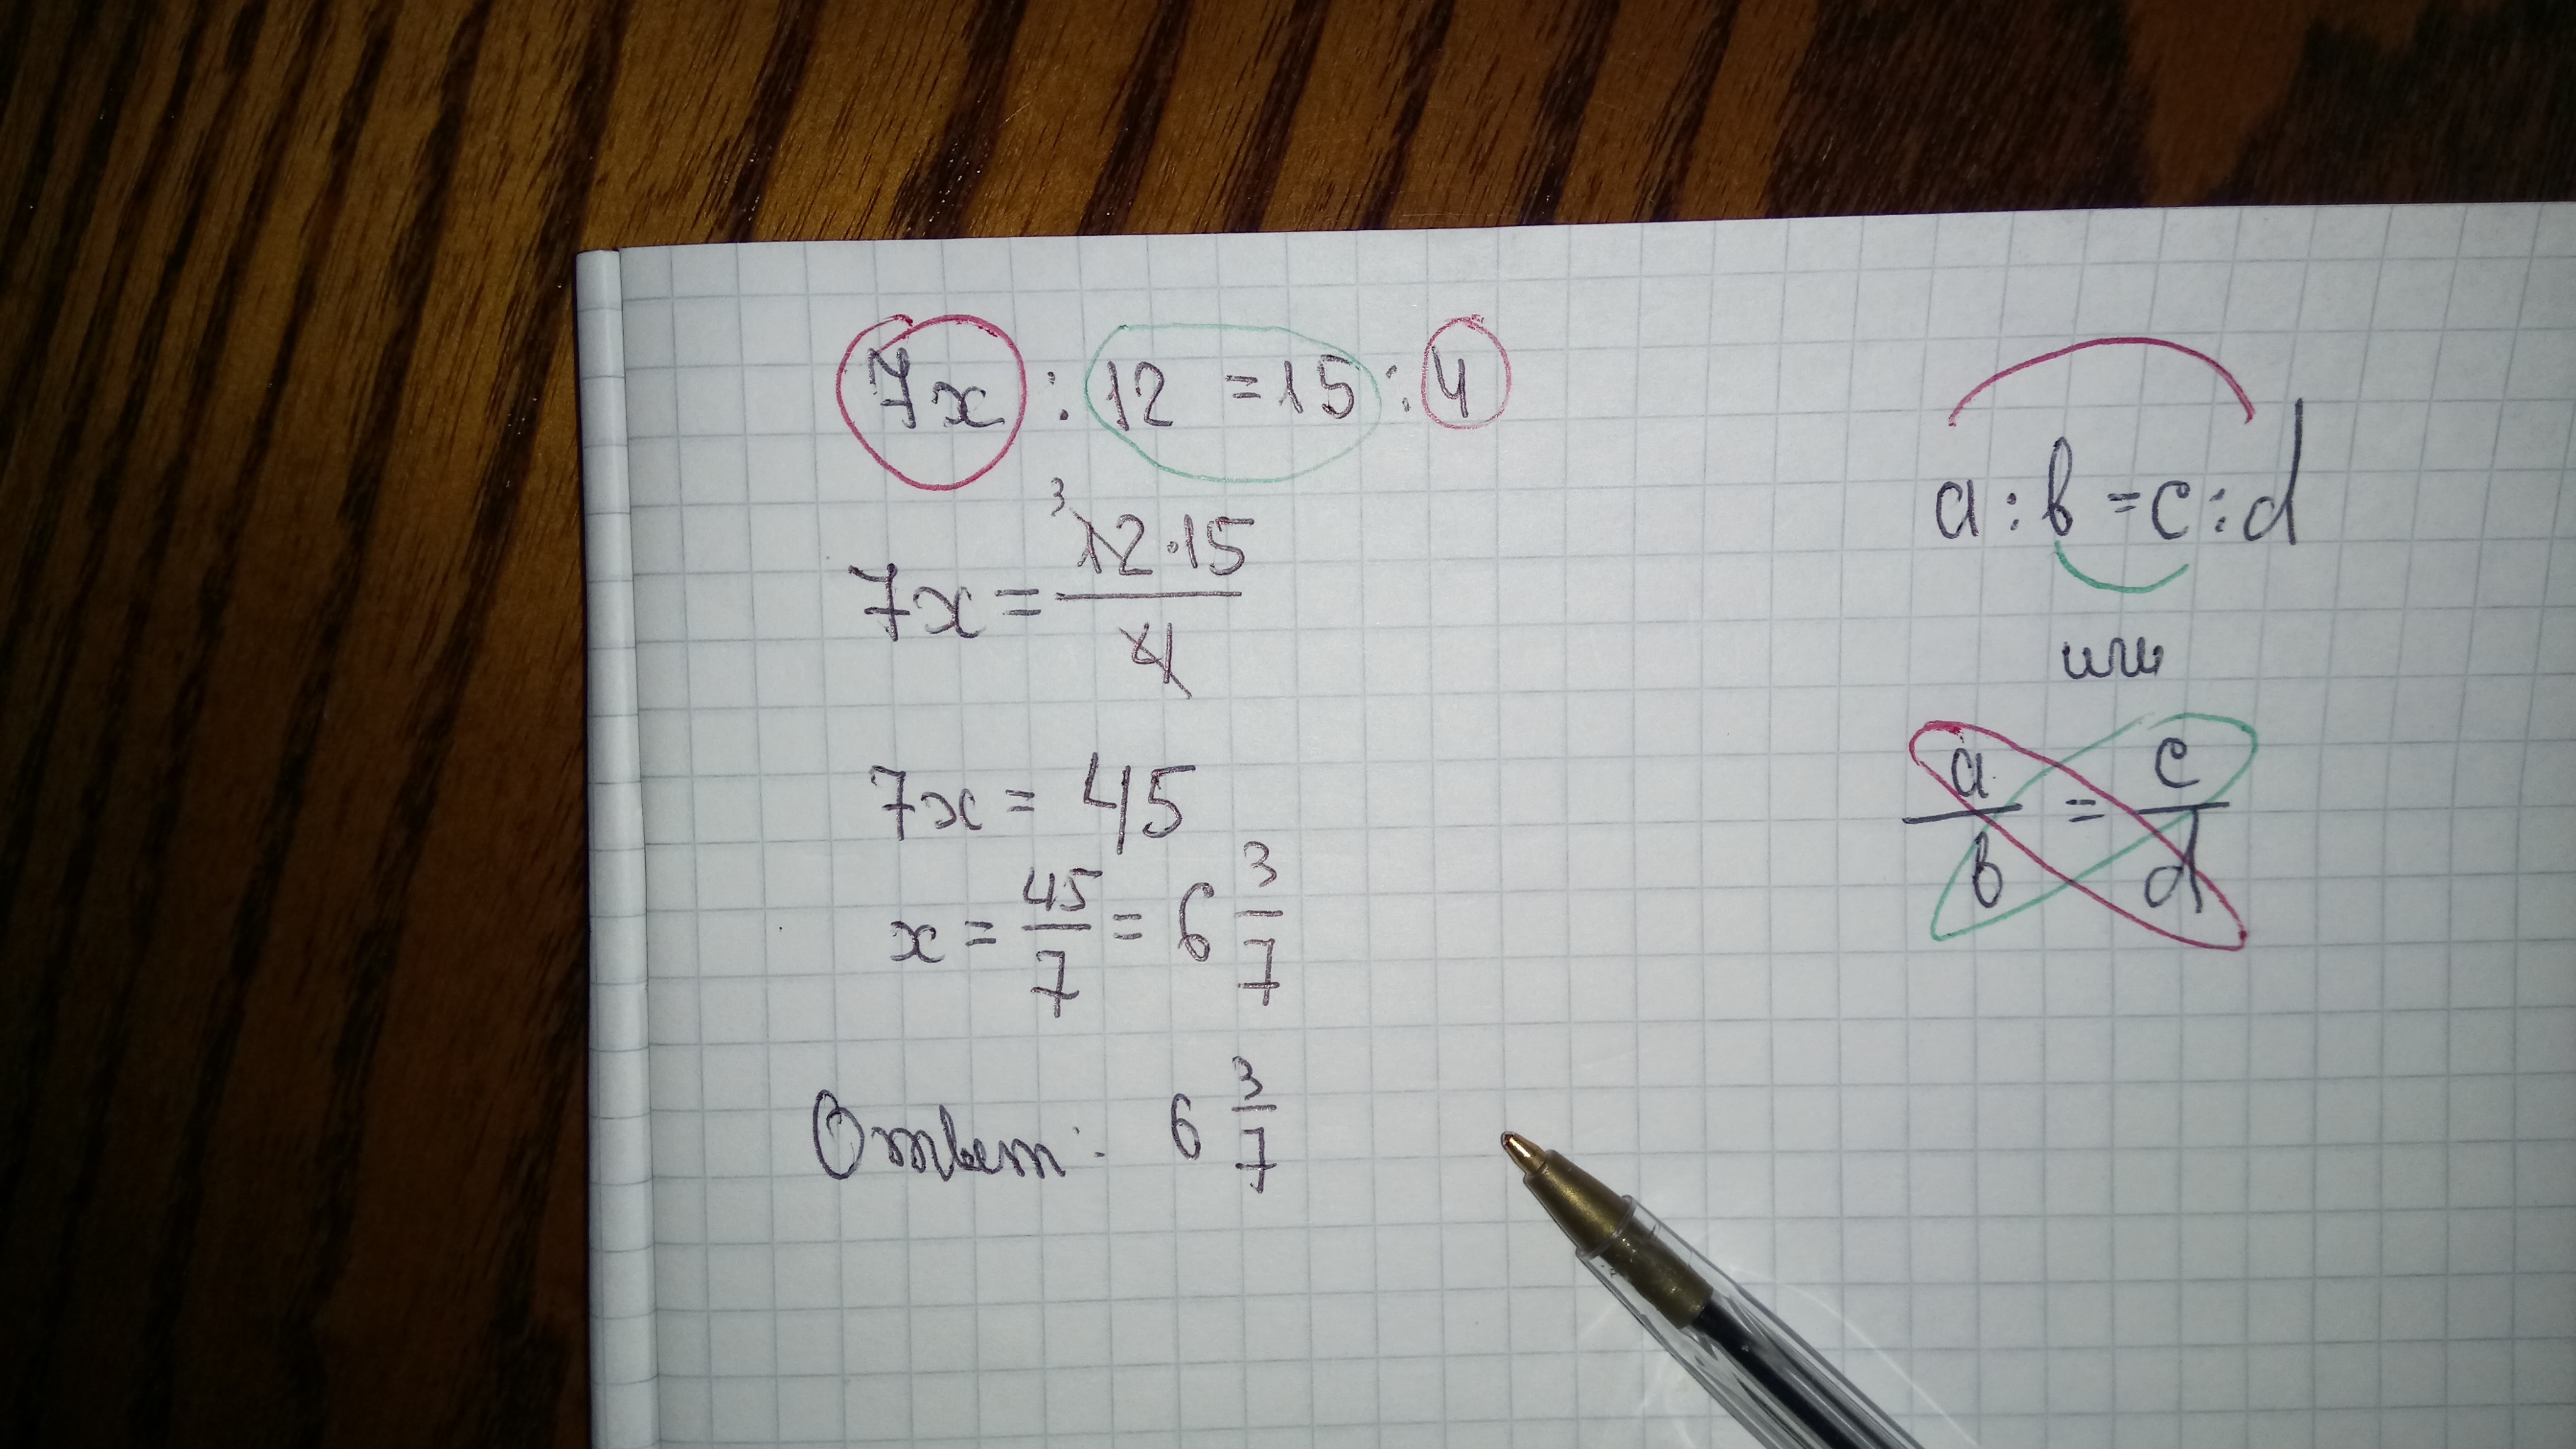 7x : 12 = 15 : 4
7x = 3 12·15 / 4
7x = 45
x = 45/7 = 6 3/7
Ответ: 6 3/7
a : b = c : d
или
a/b = c/d